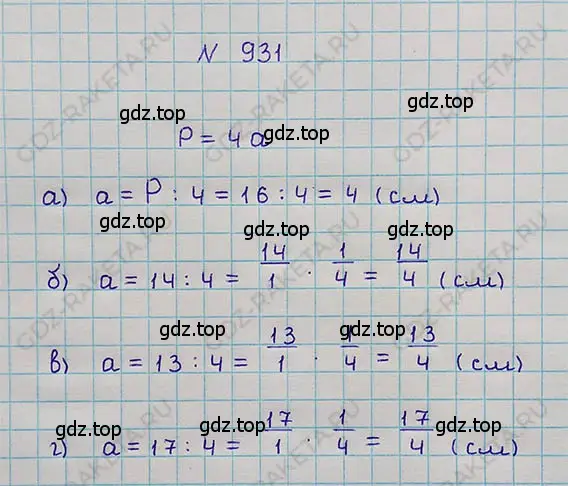 N 931
gdz.top gdz.top
P = 4a
gdz.top gdz.top
а) a = P : 4 = 16 : 4 = 4 (см)
gdz.top gdz.top
б) a = 14 : 4 = 14/1 · 1/4 = 14/4 (см)
gdz.top gdz.top
в) a = 13 : 4 = 13/1 · 1/4 = 13/4 (см)
gdz.top gdz.top gdz.top
г) a = 17 : 4 = 17/1 · 1/4 = 17/4 (см)
GDZ-RAKETA.RU